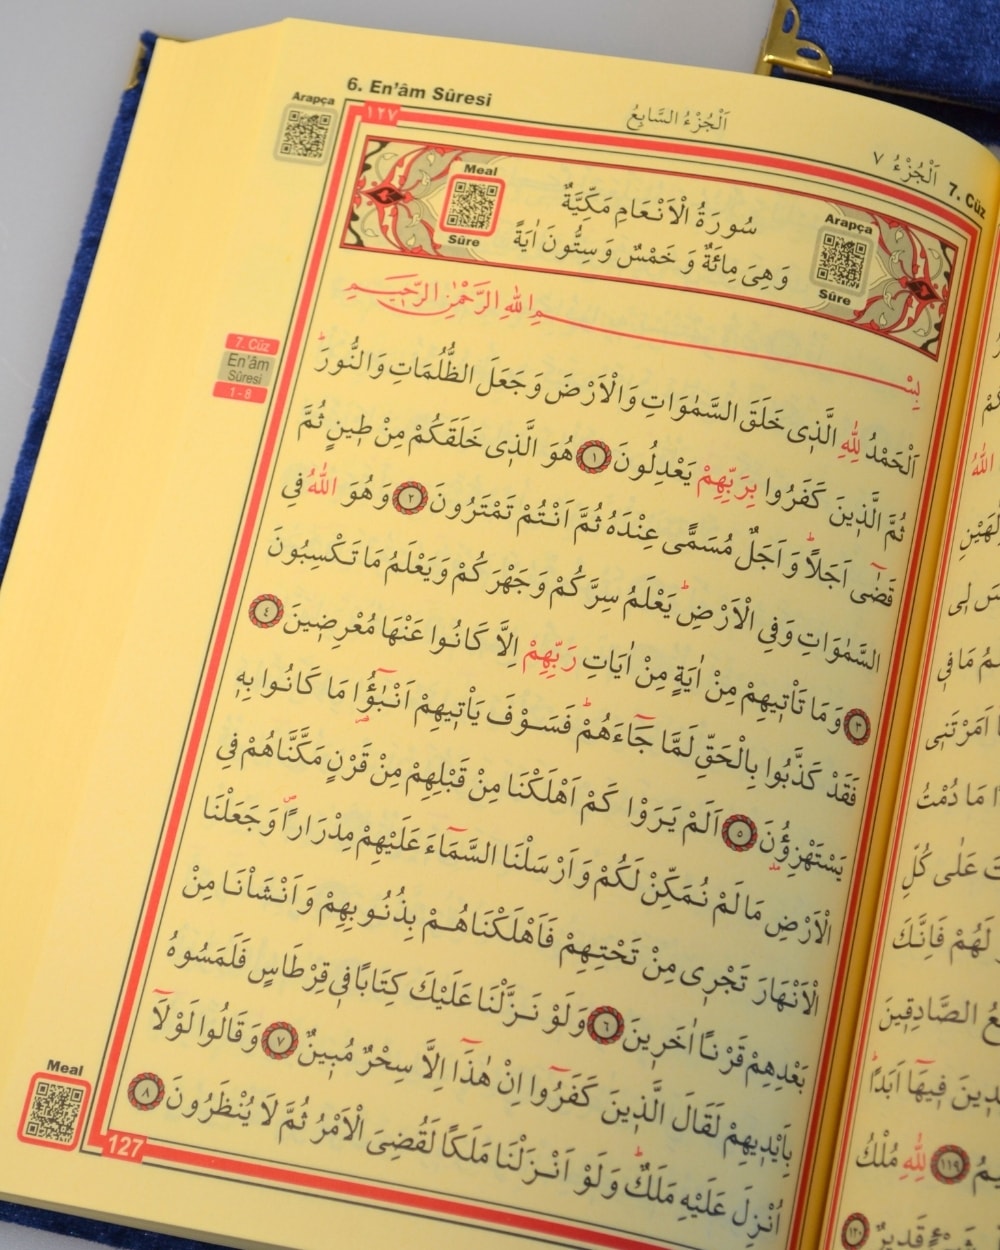 6. En'âm Sûresi
اَلْجُزْءُ السَّابِعُ
اَلْجُزْءُ ٧
7. Cüz
Arapça
١٢٧
Meal
Sûre
سُورَةُ الْاَنْعَامِ مَكِّيَّةٌ
وَهِىَ مِائَةٌ وَ خَمْسٌ وَسِتُّونَ اٰيَةً
Arapça
Sûre
بِسْمِ اللهِ الرَّحْمٰنِ الرَّحِيمِ
7. Cüz
En'âm
Sûresi
1 - 8
اَلْحَمْدُ لِلّٰهِ الَّذِى خَلَقَ السَّمٰوَاتِ وَالْاَرْضَ وَجَعَلَ الظُّلُمَاتِ وَالنُّورَ
ثُمَّ الَّذِينَ كَفَرُوا بِرَبِّهِمْ يَعْدِلُونَ ١ هُوَ الَّذِى خَلَقَكُمْ مِنْ طِينٍ ثُمَّ
قَضٰٓى اَجَلاً وَاَجَلٌ مُسَمًّى عِنْدَهُ ثُمَّ اَنْتُمْ تَمْتَرُونَ ٢ وَهُوَ اللهُ فِى
السَّمٰوَاتِ وَفِى الْاَرْضِ يَعْلَمُ سِرَّكُمْ وَجَهْرَكُمْ وَيَعْلَمُ مَا تَكْسِبُونَ
٣ وَمَا تَأْتِيهِمْ مِنْ اٰيَةٍ مِنْ اٰيَاتِ رَبِّهِمْ اِلَّا كَانُوا عَنْهَا مُعْرِضِينَ ٤
فَقَدْ كَذَّبُوا بِالْحَقِّ لَمَّا جَٓاءَهُمْ فَسَوْفَ يَأْتِيهِمْ اَنْبٰٓؤُا مَا كَانُوا بِهِ
يَسْتَهْزِؤُنَ ٥ اَلَمْ يَرَوْا كَمْ اَهْلَكْنَا مِنْ قَبْلِهِمْ مِنْ قَرْنٍ مَكَّنَّاهُمْ فِى
الْاَرْضِ مَا لَمْ نُمَكِّنْ لَكُمْ وَاَرْسَلْنَا السَّمَٓاءَ عَلَيْهِمْ مِدْرَاراً وَجَعَلْنَا
الْاَنْهَارَ تَجْرِى مِنْ تَحْتِهِمْ فَاَهْلَكْنَاهُمْ بِذُنُوبِهِمْ وَاَنْشَاْنَا مِنْ
بَعْدِهِمْ قَرْناً اٰخَرِينَ ٦ وَلَوْ نَزَّلْنَا عَلَيْكَ كِتَابًا فِى قِرْطَاسٍ فَلَمَسُوهُ
بِاَيْدِيهِمْ لَقَالَ الَّذِينَ كَفَرُٓوا اِنْ هٰذَٓا اِلَّا سِحْرٌ مُبِينٌ ٧ وَقَالُوا لَوْلَٓا
اُنْزِلَ عَلَيْهِ مَلَكٌ وَلَوْ اَنْزَلْنَا مَلَكًا لَقُضِىَ الْاَمْرُ ثُمَّ لَا يُنْظَرُونَ ٨
Meal
127
اللهُ
مَا فِى
اَمَرْتَنِى
مَا دُمْتُ
عَلٰى كُلِّ
لَهُمْ فَاِنَّكَ
الصَّادِقِينَ
فِيهَٓا اَبَداً
١١٩ لِلّٰهِ مُلْكُ
قَدِيرٌ ١٢٠